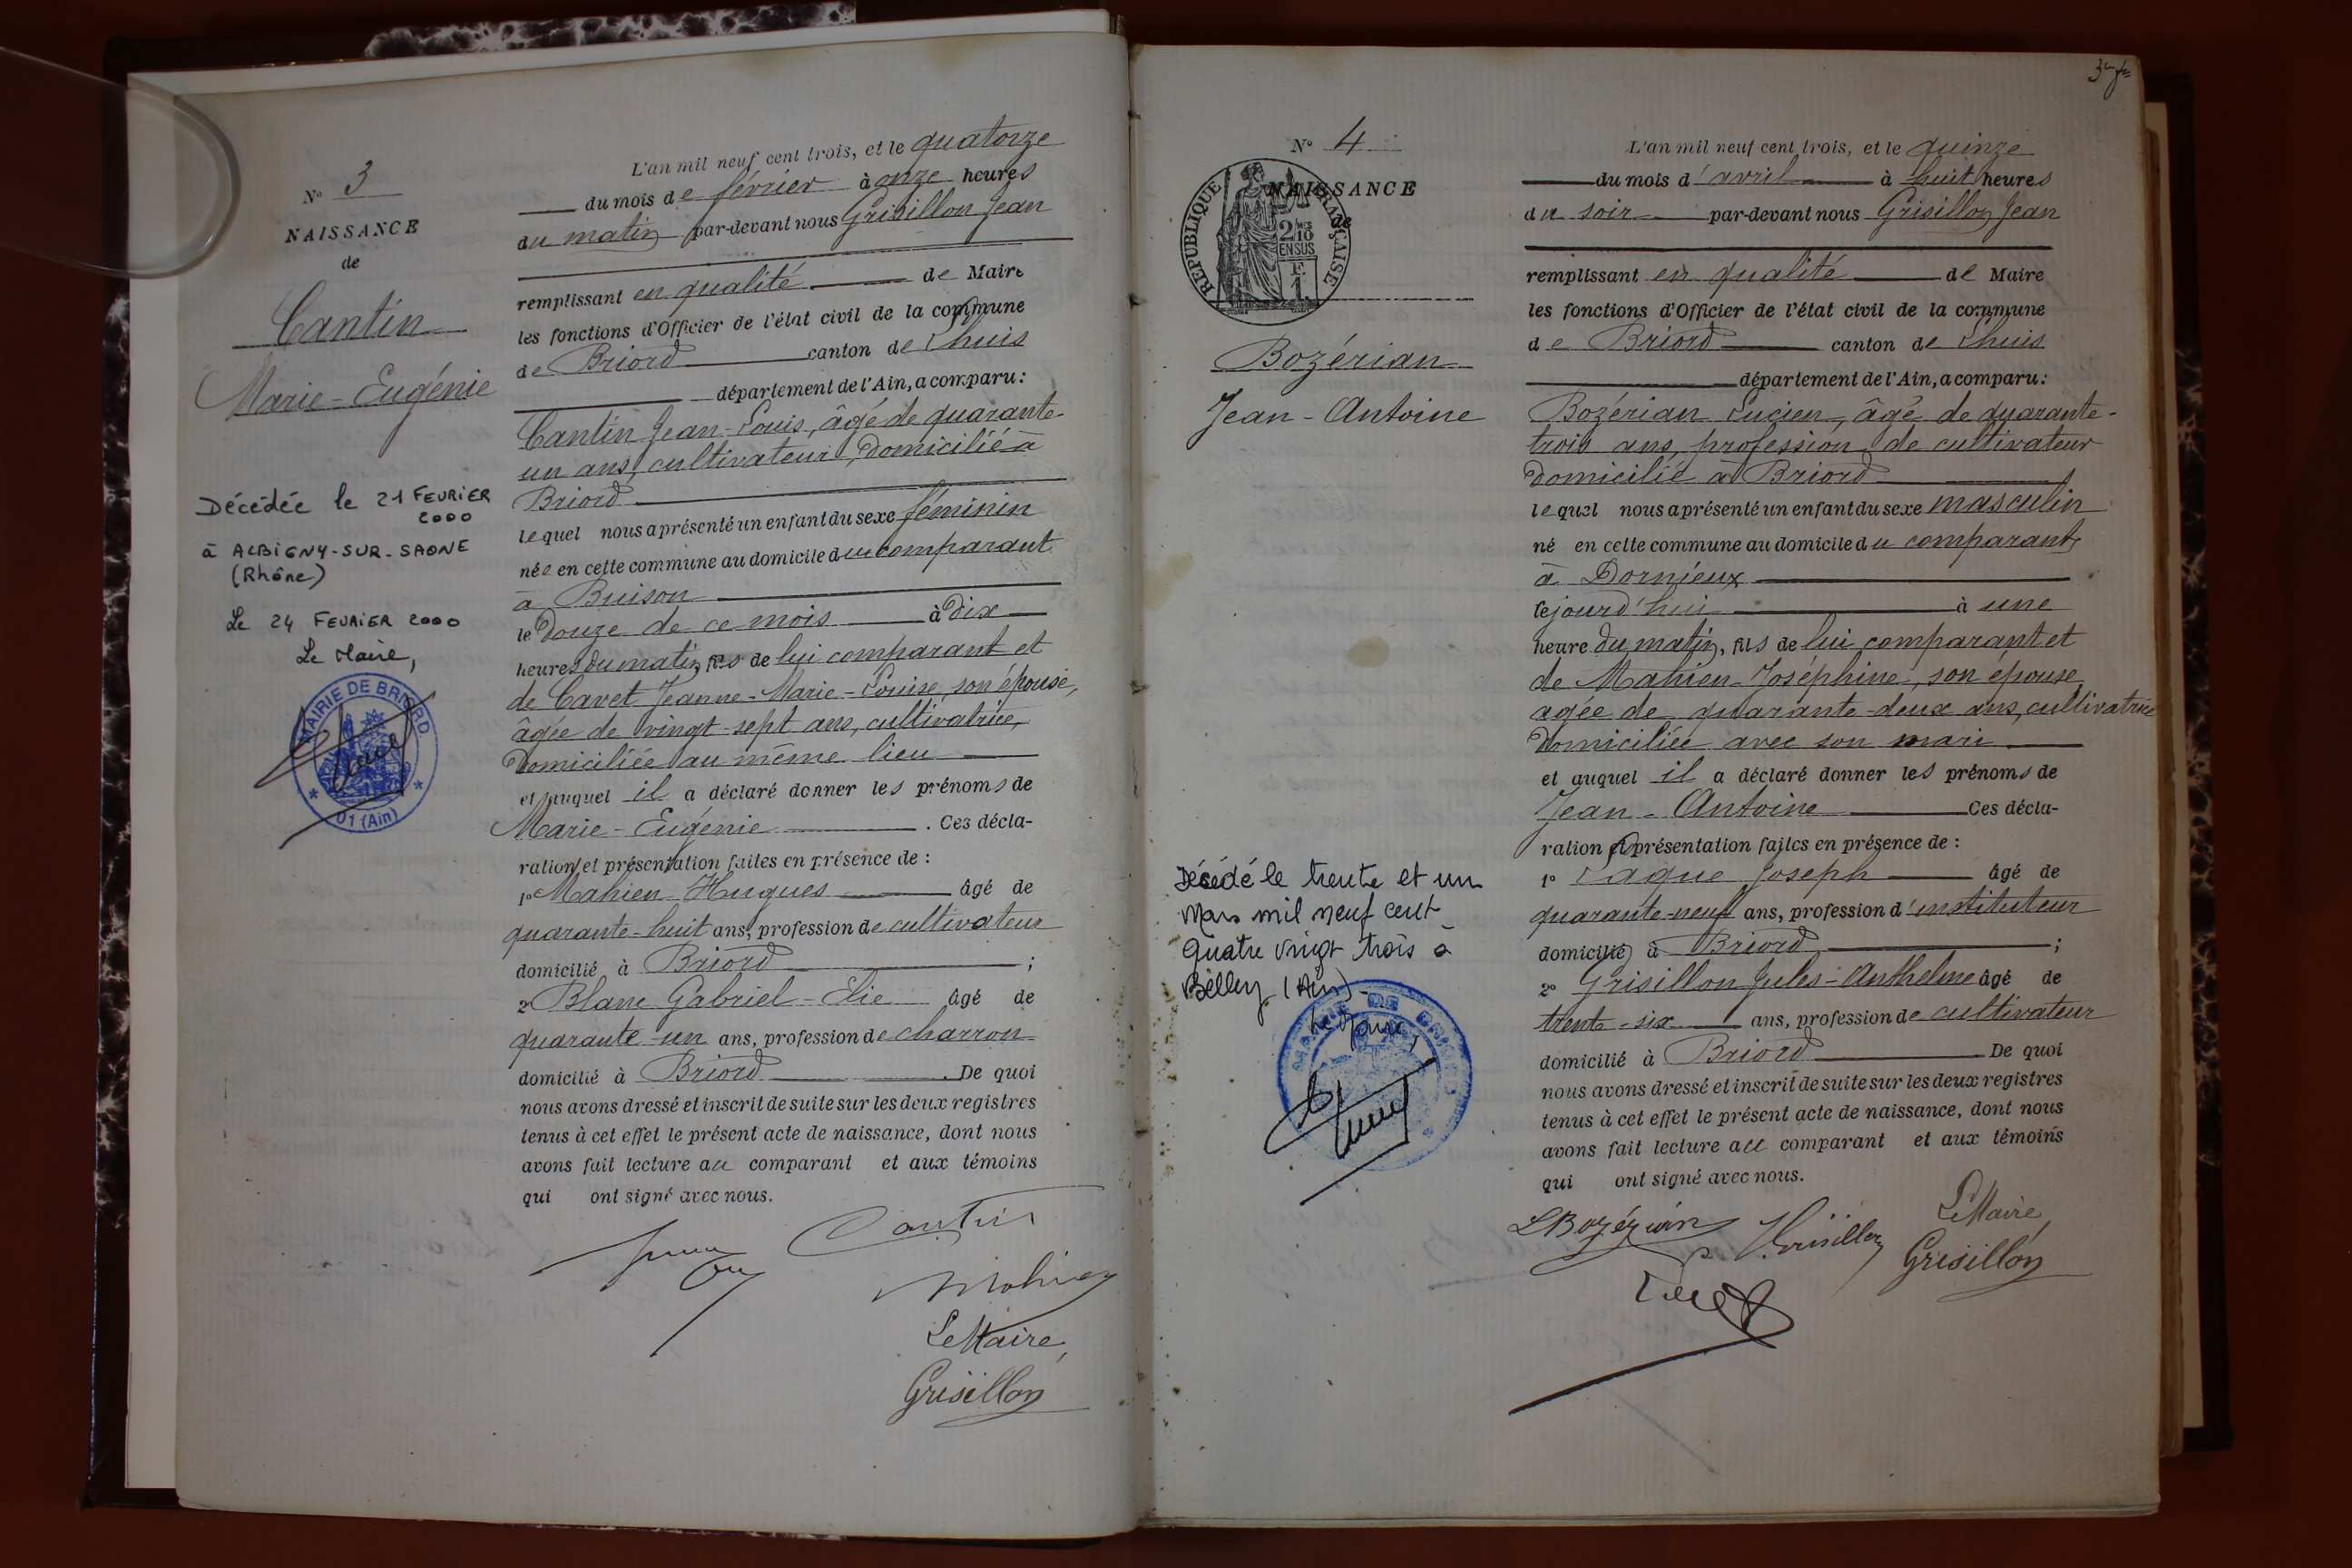 N° 3
NAISSANCE
de
Cantin
Marie-Eugénie
Décédée le 21 FEVRIER
2000
à ALBIGNY-SUR-SAONE
(Rhône)
Le 24 FEVRIER 2000
Le Maire,
MAIRIE DE BRIORD
* 01 (Ain) *
L'an mil neuf cent trois, et le quatorze
du mois de février à onze heures
du matin par-devant nous Grisillon Jean
remplissant en qualité de Maire
les fonctions d'Officier de l'état civil de la commune
de Briord canton de Lhuis
département de l'Ain, a comparu:
Cantin Jean-Louis, âgé de quarante-
un ans, cultivateur, domicilié à
Briord
lequel nous a présenté un enfant du sexe féminin
née en cette commune au domicile du comparant
à Buison
le douze de ce mois à dix
heures du matin, fils de lui comparant et
de Cavet Jeanne-Marie-Louise, son épouse,
âgée de vingt-sept ans, cultivatrice,
domiciliée au même lieu
et auquel il a déclaré donner les prénoms de
Marie-Eugénie. Ces décla-
ration et présentation faites en présence de :
1° Mahieu Hugues âgé de
quarante-huit ans, profession de cultivateur
domicilié à Briord ;
2° Blanc Gabriel-Elie âgé de
quarante-un ans, profession de charron
domicilié à Briord. De quoi
nous avons dressé et inscrit de suite sur les deux registres
tenus à cet effet le présent acte de naissance, dont nous
avons fait lecture au comparant et aux témoins
qui ont signé avec nous.
Cantin
Mahieu
Le Maire,
Grisillon
N° 4
NAISSANCE
de
REPUBLIQUE FRANÇAISE
2 10MES
EN SUS
F.
1.
Bozérian
Jean-Antoine
Décédé le trente et un
Mars mil neuf cent
quatre vingt trois à
Belley (Ain)
Le Maire,
L'an mil neuf cent trois, et le quinze
du mois d'avril à huit heures
du soir par-devant nous Grisillon Jean
remplissant en qualité de Maire
les fonctions d'Officier de l'état civil de la commune
de Briord canton de Lhuis
département de l'Ain, a comparu:
Bozérian Lucien, âgé de quarante-
trois ans, profession de cultivateur
domicilié à Briord
lequel nous a présenté un enfant du sexe masculin
né en cette commune au domicile du comparant,
à Dornieux
lejourd'hui à une
heure du matin, fils de lui comparant et
de Mahieu Joséphine, son épouse
agée de quarante-deux ans, cultivatrice
domiciliée avec son mari
et auquel il a déclaré donner les prénoms de
Jean-Antoine Ces décla-
ration et présentation faites en présence de :
1° Laque Joseph âgé de
quarante-neuf ans, profession d'instituteur
domicilié à Briord ;
2° Grisillon Jules-Anthelme âgé de
trente-six ans, profession de cultivateur
domicilié à Briord De quoi
nous avons dressé et inscrit de suite sur les deux registres
tenus à cet effet le présent acte de naissance, dont nous
avons fait lecture au comparant et aux témoins
qui ont signé avec nous.
LBozérian Grisillon Le Maire,
Grisillon